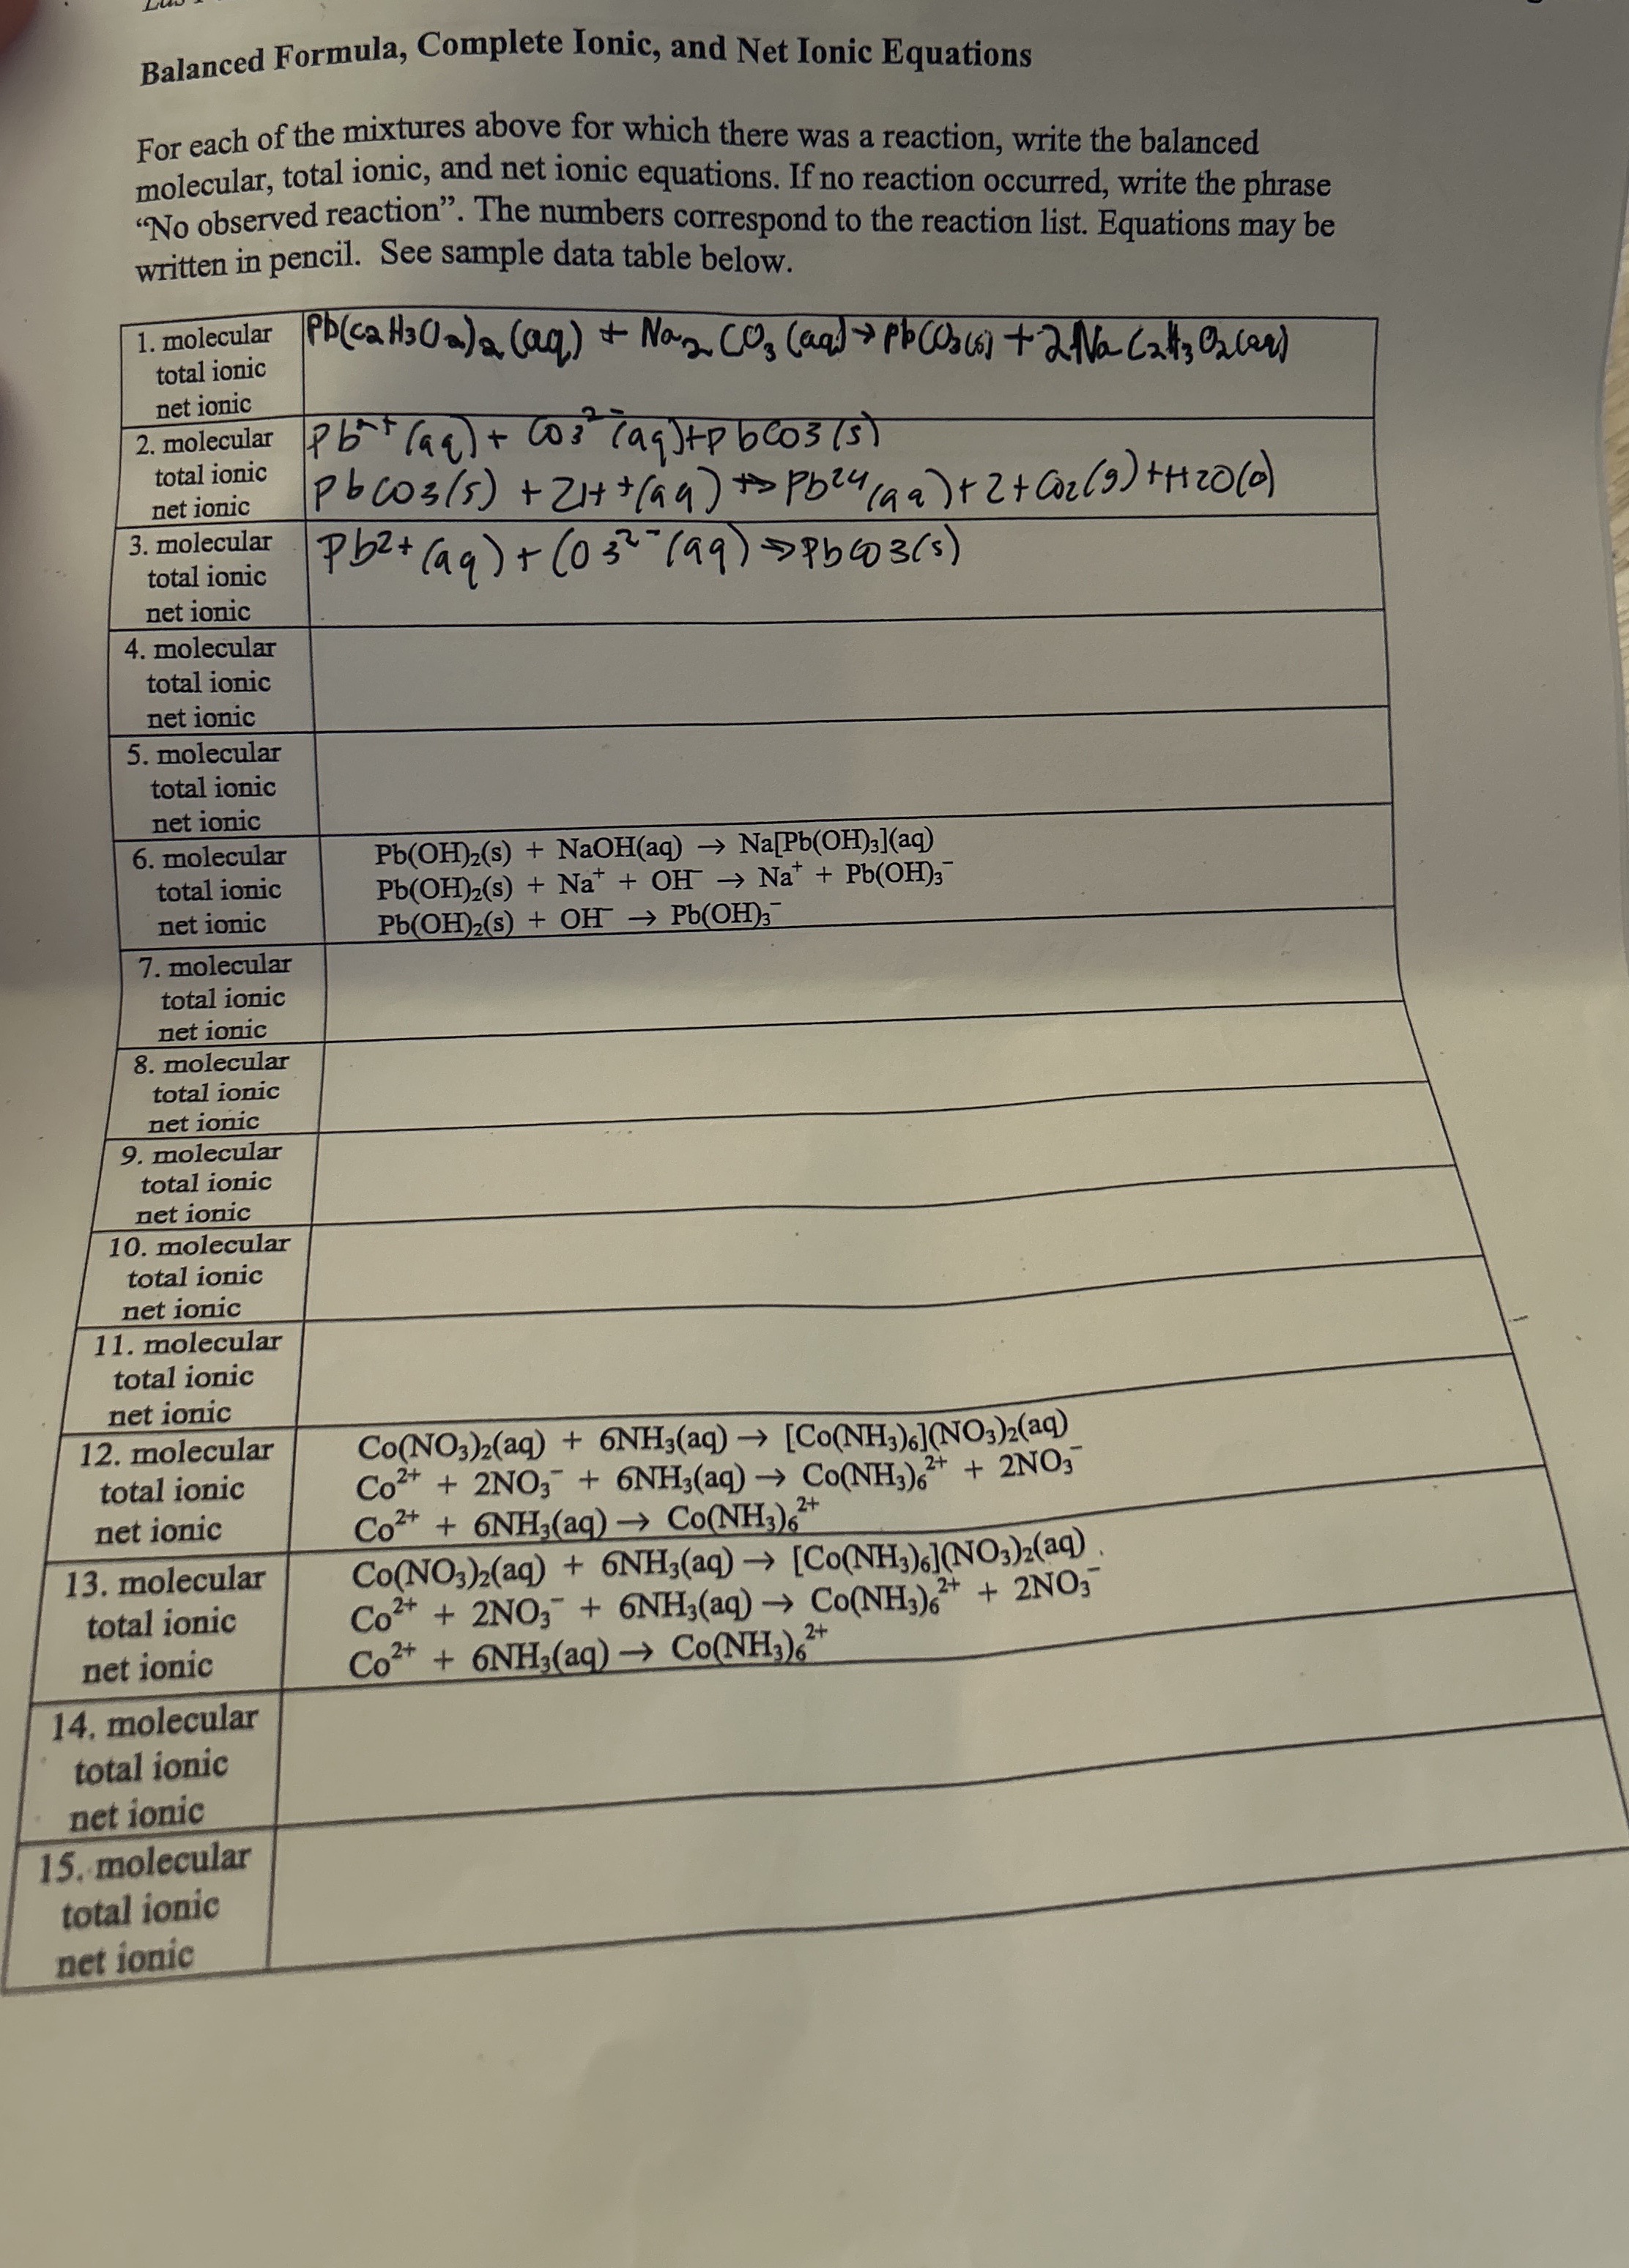 Balanced Formula, Complete Ionic, and Net Ionic Equations
For each of the mixtures above for which there was a reaction, write the balanced
molecular, total ionic, and net ionic equations. If no reaction occurred, write the phrase
“No observed reaction”. The numbers correspond to the reaction list. Equations may be
written in pencil. See sample data table below.
1. molecular Pb(C2H3O2)2 (aq) + Na2 CO3 (aq) → PbCO3(s) + 2Na C2H3 O2(aq)
total ionic
net ionic
2. molecular Pb²⁺ (aq) + CO3²⁻(aq)+PbCO3(s)
total ionic
net ionic PbCO3(s) + 2H+(aq) → Pb²⁴(aq) + 2+CO2(g) + H2O(l)
3. molecular Pb2+ (aq) + CO3²⁻ (aq) → PbCO3(s)
total ionic
net ionic
4. molecular
total ionic
net ionic
5. molecular
total ionic
net ionic
6. molecular Pb(OH)₂(s) + NaOH(aq) → Na[Pb(OH)₃](aq)
total ionic Pb(OH)₂(s) + Na⁺ + OH⁻ → Na⁺ + Pb(OH)₃⁻
net ionic Pb(OH)₂(s) + OH⁻ → Pb(OH)₃⁻
7. molecular
total ionic
net ionic
8. molecular
total ionic
net ionic
9. molecular
total ionic
net ionic
10. molecular
total ionic
net ionic
11. molecular
total ionic
net ionic
12. molecular Co(NO₃)₂(aq) + 6NH₃(aq) → [Co(NH₃)₆](NO₃)₂(aq)
total ionic Co²⁺ + 2NO₃⁻ + 6NH₃(aq) → Co(NH₃)₆²⁺ + 2NO₃⁻
net ionic Co²⁺ + 6NH₃(aq) → Co(NH₃)₆²⁺
13. molecular Co(NO₃)₂(aq) + 6NH₃(aq) → [Co(NH₃)₆](NO₃)₂(aq)
total ionic Co²⁺ + 2NO₃⁻ + 6NH₃(aq) → Co(NH₃)₆²⁺ + 2NO₃⁻
net ionic Co²⁺ + 6NH₃(aq) → Co(NH₃)₆²⁺
14. molecular
total ionic
net ionic
15. molecular
total ionic
net ionic